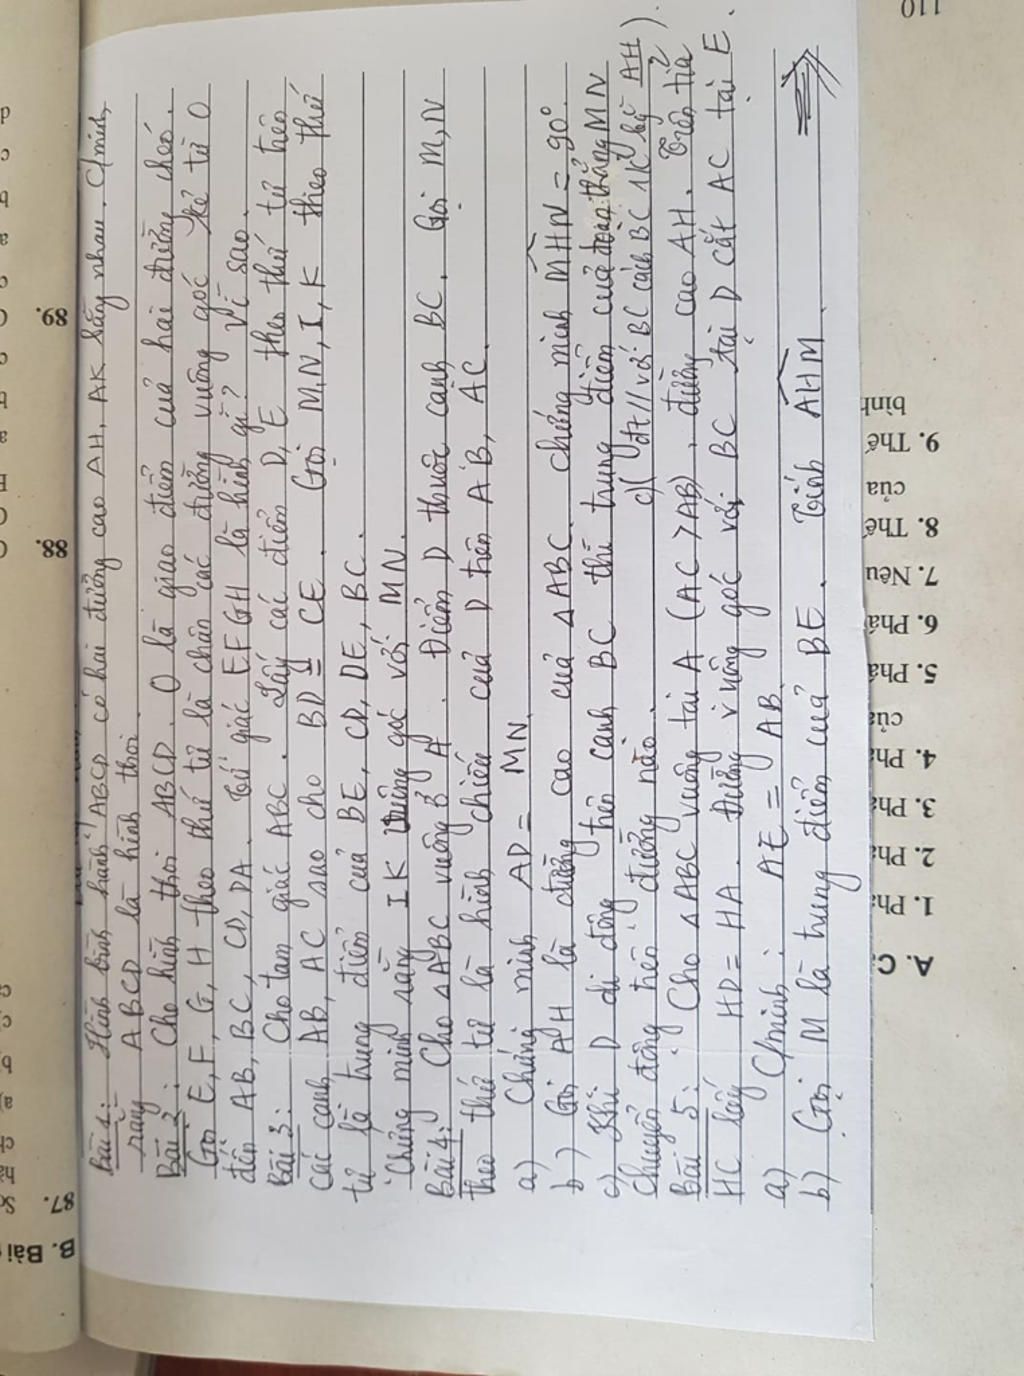 Bài 1: Hình bình hành ABCD có hai đường cao AH, AK bằng nhau. C/minh
rằng ABCD là hình thoi.
Bài 2: Cho hình thoi ABCD. O là giao điểm của hai đường chéo.
Gọi E, F, G, H theo thứ tự là chân các đường vuông góc kẻ từ O
đến AB, BC, CD, DA. Tứ giác EFGH là hình gì? Vì sao.
Bài 3: Cho tam giác ABC. Lấy các điểm D, E theo thứ tự trên
các cạnh AB, AC sao cho BD = CE. Gọi M, N, I, K theo thứ
tự là trung điểm của BE, CD, DE, BC.
Chứng minh rằng IK vuông góc với MN.
Bài 4: Cho △ABC vuông ở A. Điểm D thuộc cạnh BC. Gọi M, N
Theo thứ tự là hình chiếu của D trên AB, AC.
a) Chứng minh AD = MN.
b) Gọi AH là đường cao của △ABC. chứng minh MHN = 90°.
c) Khi D di động trên cạnh BC thì trung điểm của đoạn thẳng MN
chuyển động trên đường nào. c) (đt // với BC cách BC 1 k bg AH).
Bài 5: Cho △ABC vuông tại A (AC > AB), đường cao AH. Trên tia
HC lấy HD = HA. Đường vuông góc với BC tại D cắt AC tại E.
a) C/minh: AE = AB
b) Gọi M là trung điểm của BE. Tính AHM.
110
B. Bài
87. S
88.
89.
A. C
1. Ph
2. Ph
3. Ph
4. Ph
của
5. Phá
6. Phá
7. Nêu
8. Thế
của
9. Thế
bình